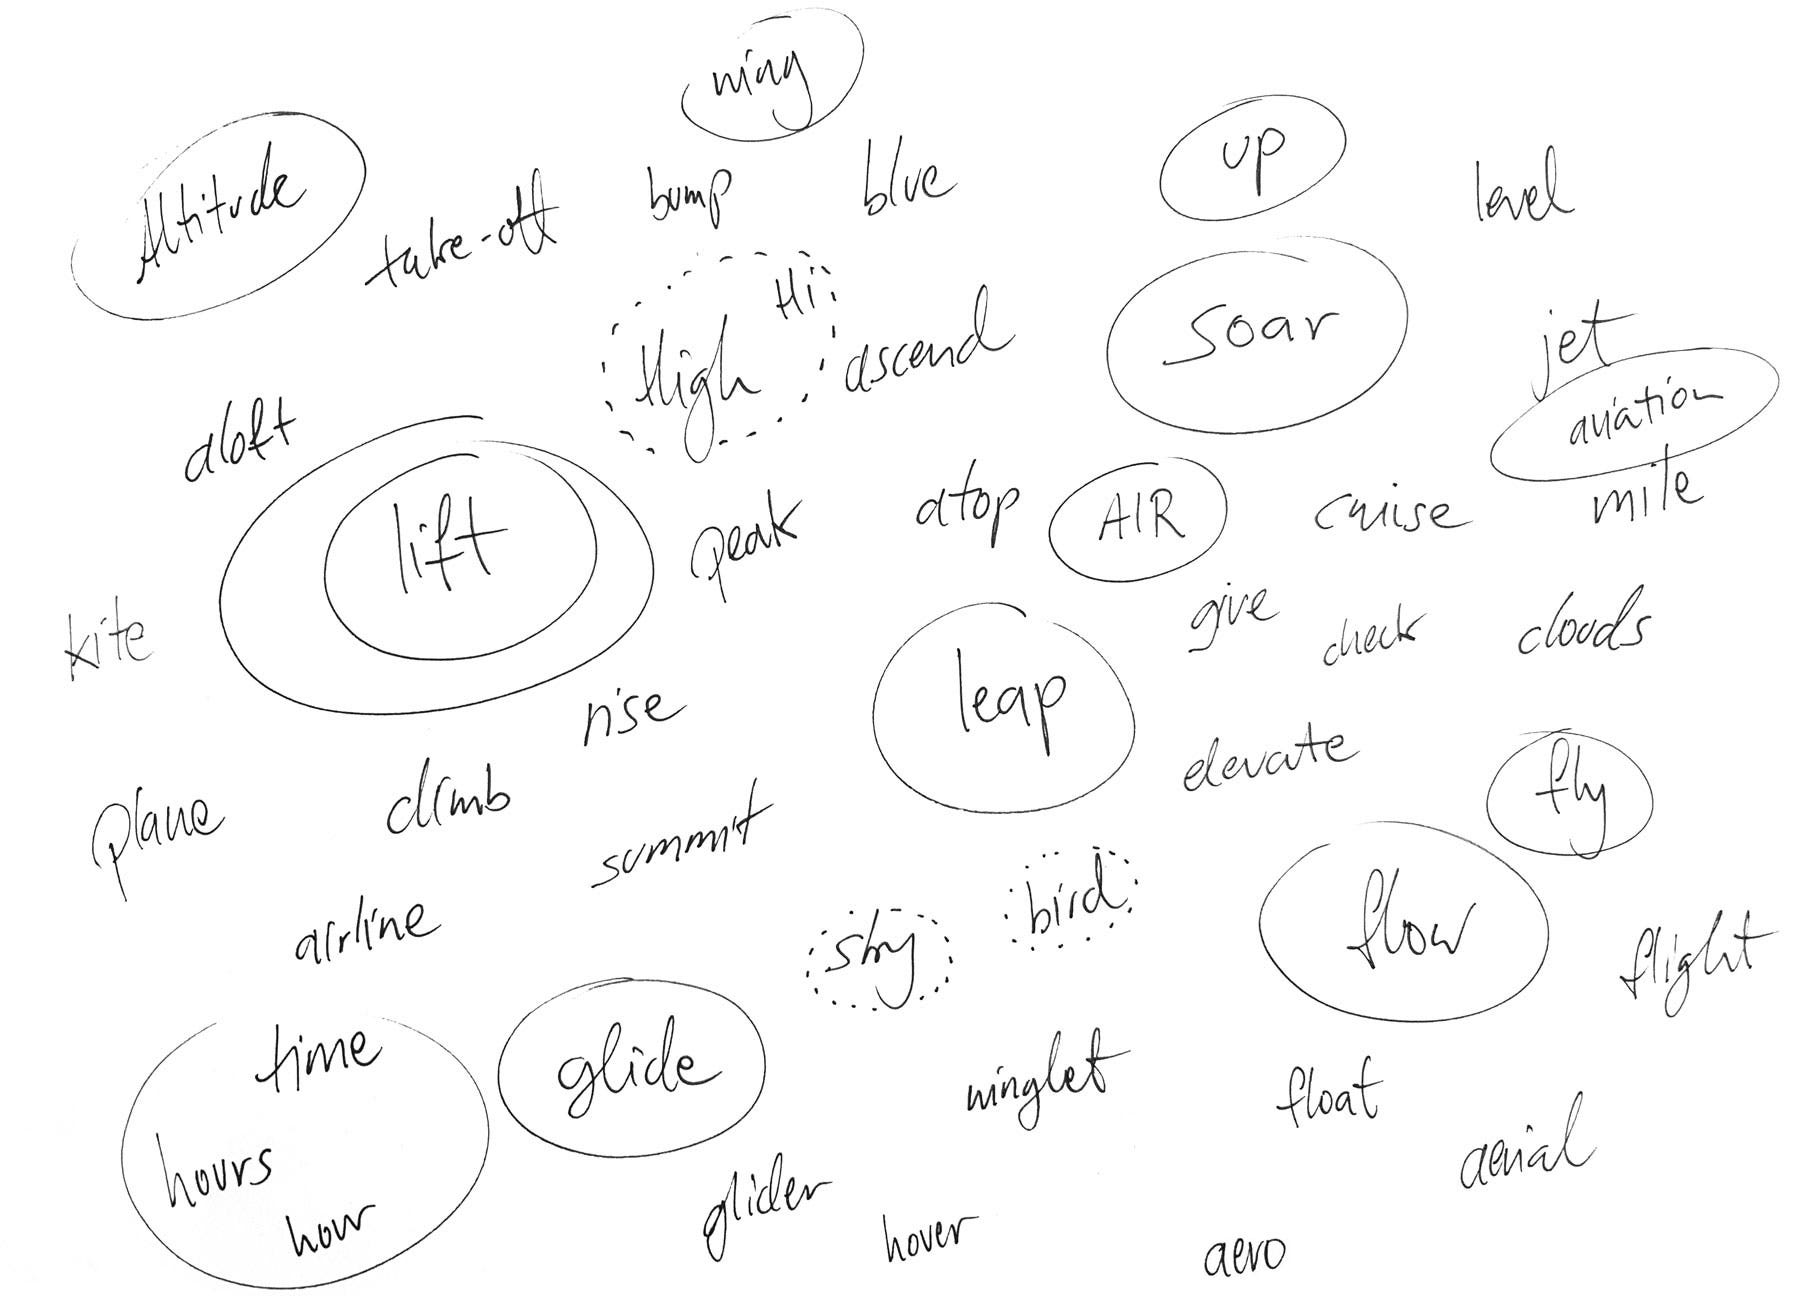 wing
Altitude
take-off
bump
blue
up
level
High
Hi
ascend
soar
jet
aviation
aloft
lift
peak
atop
AIR
cruise
mile
kite
rise
leap
give
check
clouds
elevate
fly
plane
climb
summit
airline
sky
bird
flow
flight
time
hours
hour
glide
winglet
float
aerial
glider
hover
aero